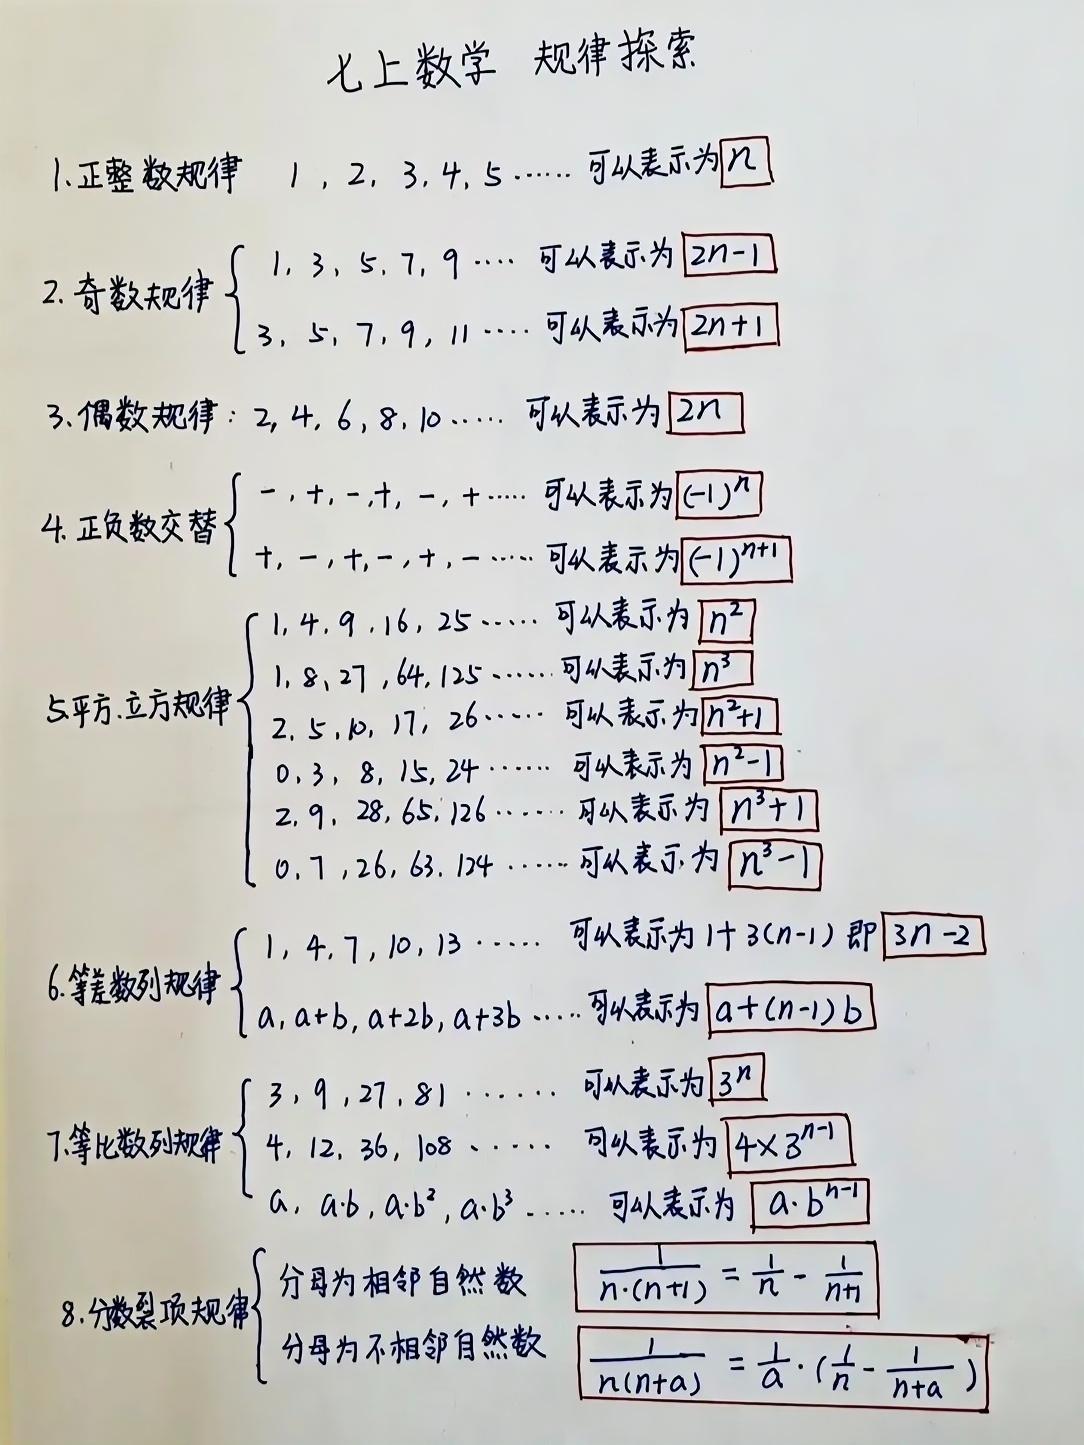 七上数学 规律探索
1.正整数规律 1, 2, 3, 4, 5 ······ 可以表示为 n
2.奇数规律 { 1, 3, 5, 7, 9 ···· 可以表示为 2n-1
3, 5, 7, 9, 11 ····· 可以表示为 2n+1
3.偶数规律: 2, 4, 6, 8, 10 ····· 可以表示为 2n
4.正负数交替 { -, +, -, +, -, + ····· 可以表示为 (-1)ⁿ
+, -, +, -, +, - ····· 可以表示为 (-1)ⁿ⁺¹
5.平方、立方规律 { 1, 4, 9, 16, 25 ······ 可以表示为 n²
1, 8, 27, 64, 125 ······ 可以表示为 n³
2, 5, 10, 17, 26 ······ 可以表示为 n²+1
0, 3, 8, 15, 24 ······ 可以表示为 n²-1
2, 9, 28, 65, 126 ······ 可以表示为 n³+1
0, 7, 26, 63, 124 ······ 可以表示为 n³-1
6.等差数列规律 { 1, 4, 7, 10, 13 ······ 可以表示为 1+3(n-1) 即 3n-2
a, a+b, a+2b, a+3b ····· 可以表示为 a+(n-1)b
7.等比数列规律 { 3, 9, 27, 81 ······ 可以表示为 3ⁿ
4, 12, 36, 108 ······ 可以表示为 4×3ⁿ⁻¹
a, a·b, a·b², a·b³ ······ 可以表示为 a·bⁿ⁻¹
8.分数裂项规律 { 分母为相邻自然数 1/(n·(n+1)) = 1/n - 1/(n+1)
分母为不相邻自然数 1/(n(n+a)) = 1/a·(1/n - 1/(n+a))